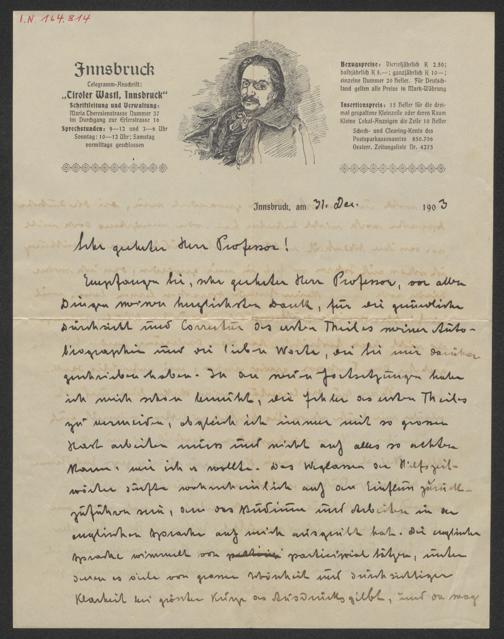 I.N. 164.814
Innsbruck
Telegramm-Anschrift:
„Tiroler Wastl, Innsbruck“
Schriftleitung und Verwaltung:
Maria Theresienstrasse Nummer 57
im Durchgang zur Erlerstrasse 16
Sprechstunden: 9—12 und 3—6 Uhr
Sonntag: 10—12 Uhr; Samstag
vormittags geschlossen
Bezugspreise: Vierteljährlich K 2.50;
halbjährlich K 5.—; ganzjährlich K 10—;
einzelne Nummer 20 Heller. Für Deutsch-
land gelten alle Preise in Mark-Währung
Insertionspreis: 15 Heller für die drei-
mal gespaltene Kleinzeile oder deren Raum
Kleine Lokal-Anzeigen die Zeile 10 Heller
Scheck- und Clearing-Konto des
Postsparkassenamtes 850.756
Oesterr. Zeitungsliste Nr. 4275
Innsbruck, am 31. Dez. 1903
Sehr geehrter Herr Professor!
Empfangen Sie, sehr geehrter Herr Professor, vor allen
Dingen meinen herzlichsten Dank, für die gründliche
Durchsicht und Correctur des ersten Theiles meiner Auto-
biographie und die lieben Worte, die Sie mir darüber
geschrieben haben. In den neuen Fortsetzungen habe
ich mich schon bemüht, die Fehler des ersten Theiles
zu vermeiden, obgleich ich immer mit so grosser
Hast arbeiten muss und nicht auf alles so achten
kann, wie ich es wollte. Das Weglassen der Hilfszeit-
wörter dürfte wahrscheinlich auf den Einfluss zurück-
zuführen sein, den das Studium und Arbeiten in der
englischen Sprache auf mich ausgeübt hat. Die englische
Sprache wimmelt von participial Sätzen, unter
denen es viele von grosser Schönheit und durchsichtiger
Klarheit bei grösster Kürze des Ausdrucks gibt, und da mag